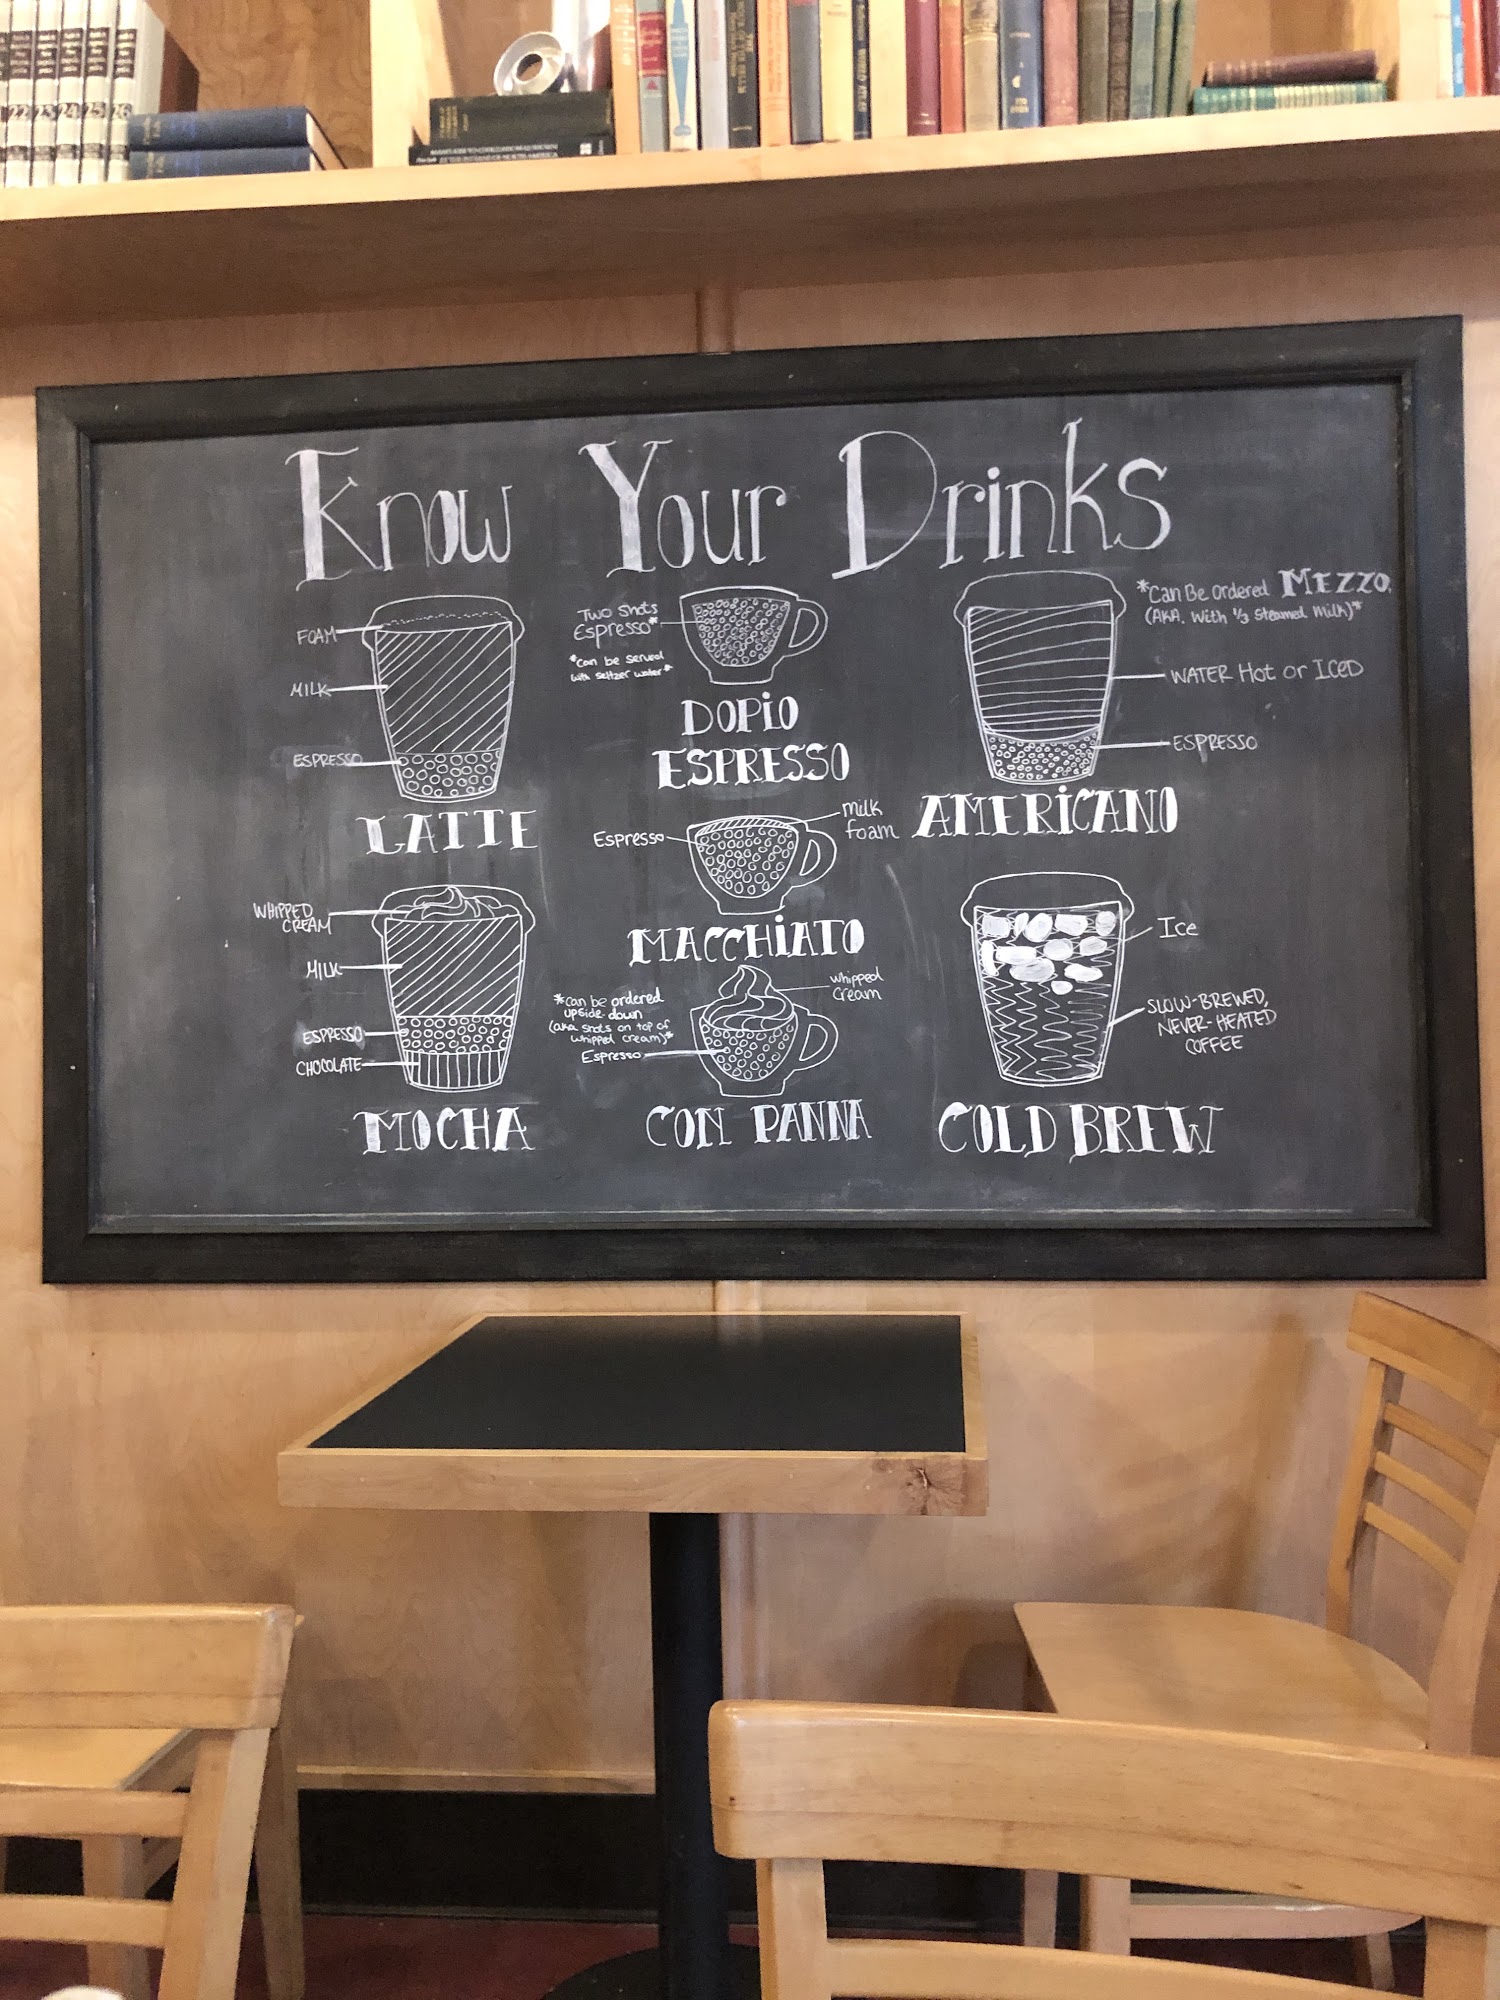 22 23 24 25 26
Know Your Drinks
FOAM
MILK
ESPRESSO
LATTE
Two Shots
Espresso*
*can be served
with seltzer water*
DOPIO
ESPRESSO
*Can Be Ordered MEZZO,
(AKA. With 1/3 Steamed Milk)*
WATER Hot or ICED
ESPRESSO
AMERICANO
Espresso
Milk
foam
MACCHIATO
WHIPPED
CREAM
MILK
ESPRESSO
CHOCOLATE
MOCHA
whipped
cream
*can be ordered
upside-down
(aka shots on top of
whipped cream)*
Espresso
CON PANNA
Ice
SLOW-BREWED,
NEVER-HEATED
COFFEE
COLD BREW